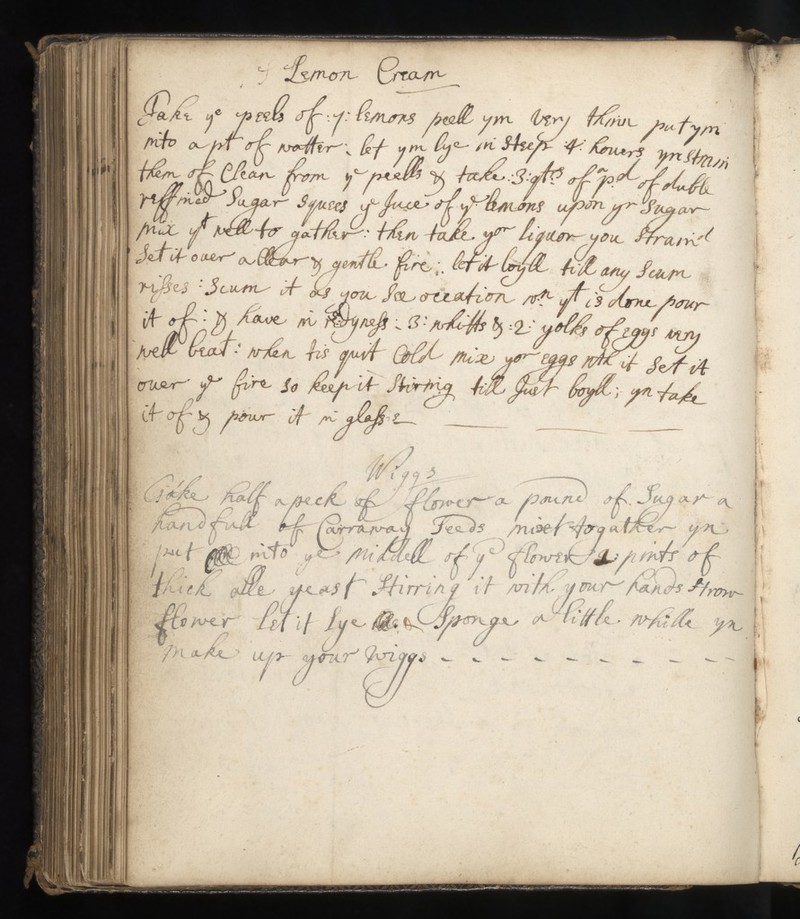 Lemon Cream
Take ye peels of :7: lemons peell ym very thinn put ym
into a pt of watter : let ym lye in steep 4: houers yn strain
them of Clean from ye peells & take :3: qtrs of a pd of duble
reffined Sugar squees ye Juce of ye lemons upon yr Sugar
mix yt well to gather : then take yor liquor you strain'd
Set it over a Clear & gentle fire : let it boyll till any Scum
risses : Scum it as you See occation wn yt is done pour
it of : & have in redyness :3: whitts & :2: yolks of eggs very
well beat : when tis quit Cold mix yor eggs wth it Set it
over ye fire so keep it Stirring till Just boyll ; yn take
it of & pour it in glasse
Wiggs
Take half a peck of flower a pound of Sugar a
handfull of Carraway Seeds mixt togather yn
put into ye middell of ye flower pints of
thick alle yeast Stirring it with your hands Strow
flower let it lye Sponge a little whille yn
make up your wiggs